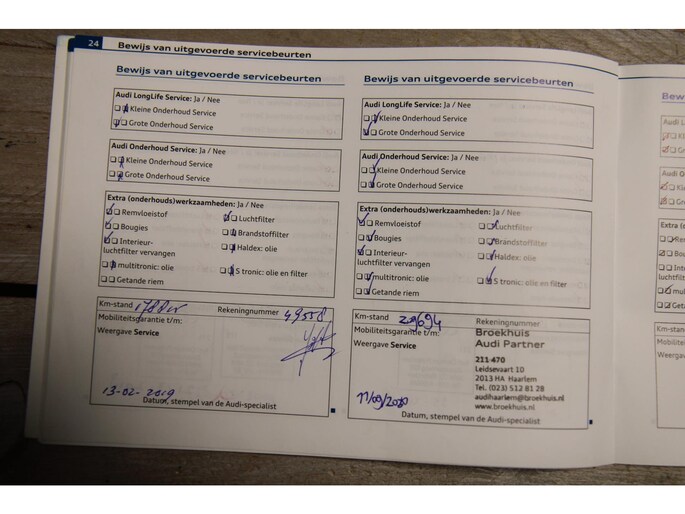 24 Bewijs van uitgevoerde servicebeurten
Bewijs van uitgevoerde servicebeurten
Audi LongLife Service: Ja / Nee
Kleine Onderhoud Service
Grote Onderhoud Service
Audi Onderhoud Service: Ja / Nee
Kleine Onderhoud Service
Grote Onderhoud Service
Extra (onderhouds)werkzaamheden: Ja / Nee
Remvloeistof Luchtfilter
Bougies Brandstoffilter
Interieur- Haldex: olie
luchtfilter vervangen
multitronic: olie S tronic: olie en filter
Getande riem
Km-stand Rekeningnummer 49558
Mobiliteitsgarantie t/m:
Weergave Service
13-02-2019
Datum, stempel van de Audi-specialist
Bewijs van uitgevoerde servicebeurten
Audi LongLife Service: Ja / Nee
Kleine Onderhoud Service
Grote Onderhoud Service
Audi Onderhoud Service: Ja / Nee
Kleine Onderhoud Service
Grote Onderhoud Service
Extra (onderhouds)werkzaamheden: Ja / Nee
Remvloeistof Luchtfilter
Bougies Brandstoffilter
Interieur- Haldex: olie
luchtfilter vervangen
multitronic: olie S tronic: olie en filter
Getande riem
Km-stand 209694 Rekeningnummer
Mobiliteitsgarantie t/m: Broekhuis
Weergave Service Audi Partner
211-470
Leidsevaart 10
2013 HA Haarlem
Tel. (023) 512 81 28
audihaarlem@broekhuis.nl
www.broekhuis.nl
11/09/2020
Datum, stempel van de Audi-specialist